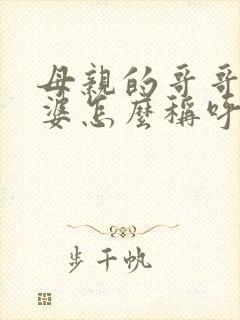 母親的哥哥
婆怎麼稱呼
步千帆